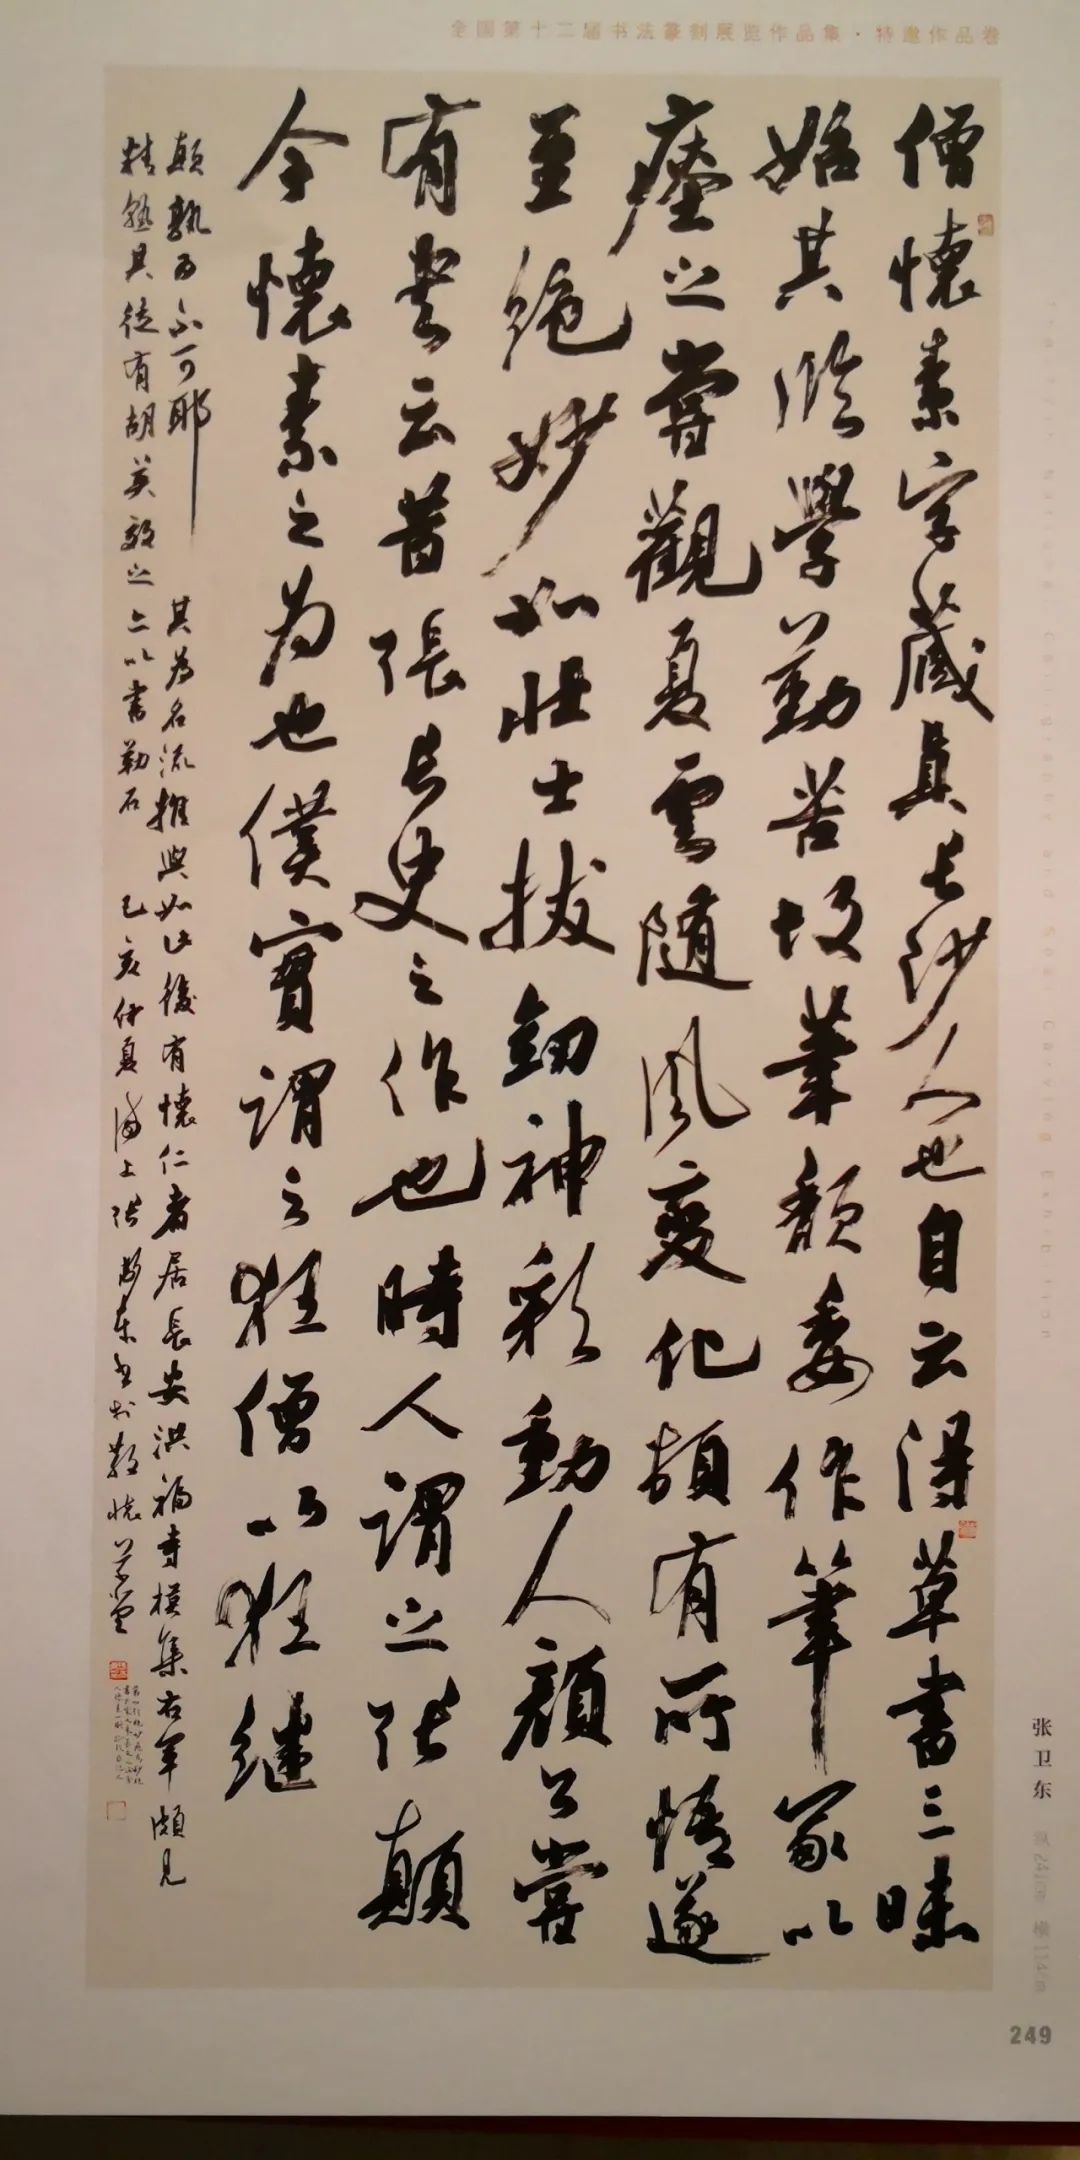 全国第十二届书法篆刻展览作品集·特邀作品卷
僧懷素字藏真長沙人也自云得草書三昧
始其臨學勤苦故筆頹委作筆冢以
瘞之嘗觀夏雲隨風變化頓有所悟遂
至絶妙如壯士拔劒神彩動人顔公嘗
有書云昔張長史之作也時人謂之張顛
今懷素之為也僕實謂之狂僧以狂继
顛孰為不可耶 其為名流推與如此後有懷仁者居長安洪福寺模集右軍頗見
精勤其徒有胡英效之亦以書勒石 己亥仲夏海上张卫东书於散怀草堂
张卫东 纵241cm 横114cm
249